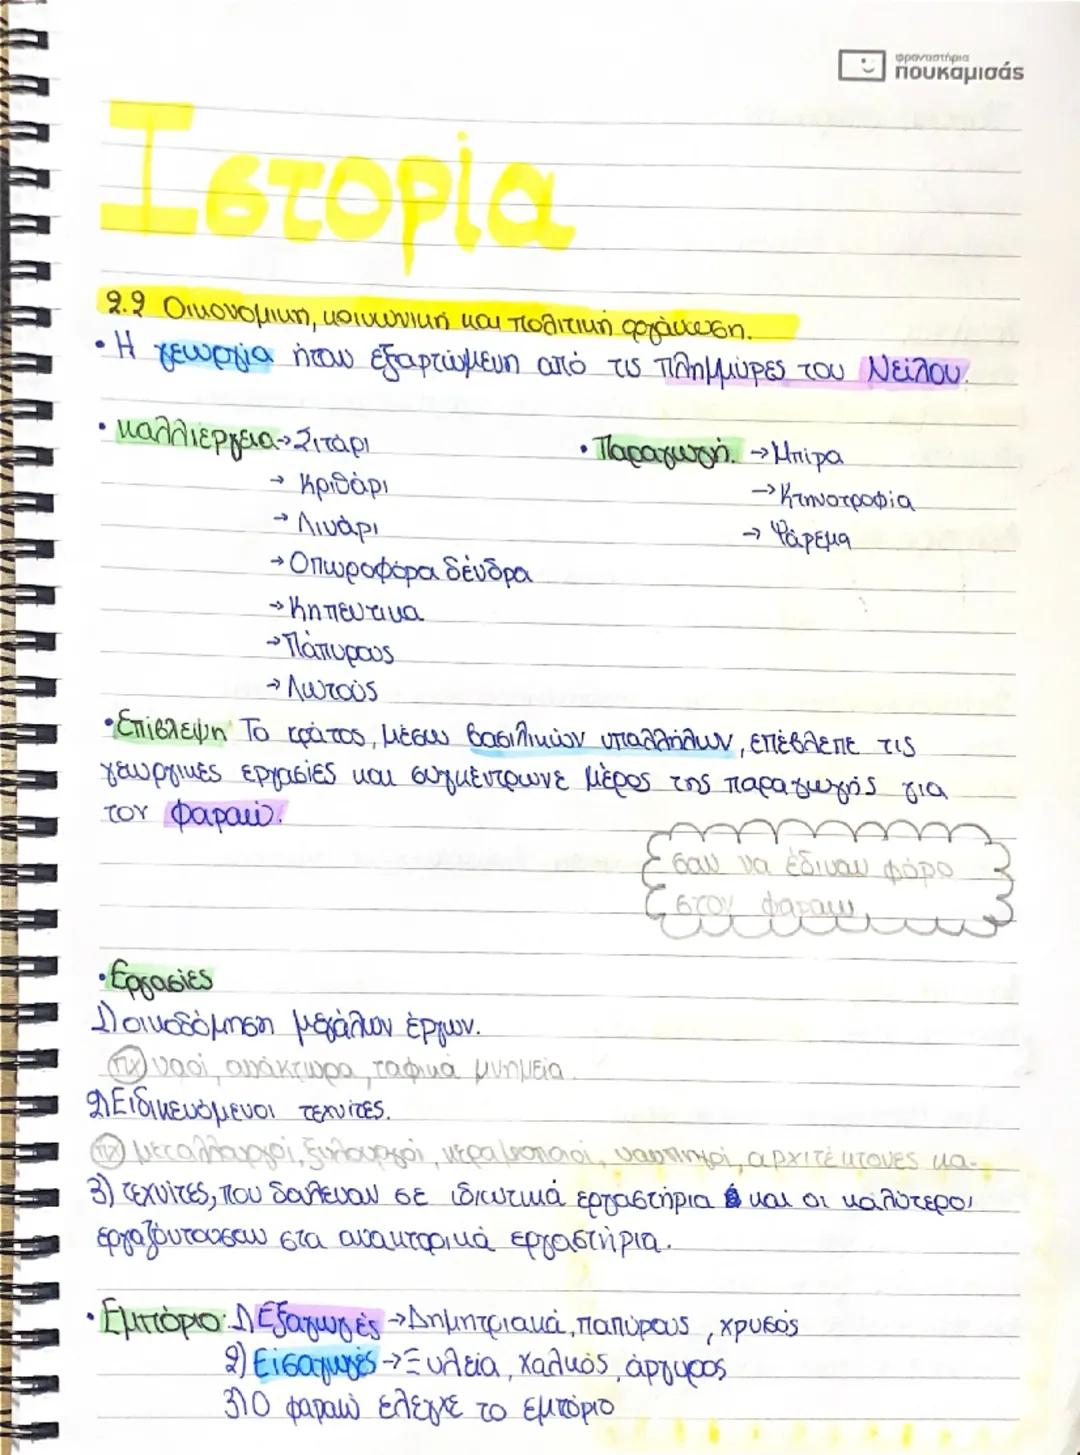 φροντιστήρια
πουκαμισάς
Ιστορία
2.2 Οικονομικη, κοινωνική και πολιτική οργάνωση.
• Η γεωργία ήταν εξαρτώμενη από τις πλημμύρες του Νείλου.
• Καλλιέργεια → Σιτάρι
→ Κριθάρι
→ Λινάρι
→ Οπωροφόρα δένδρα
→ Κηπευτικα
→ Πάπυρους
→ Λωτούς
• Παραγωγή. → Μπίρα
→ Κτηνοτροφία
→ Ψάρεμα
• Επίβλεψη Το κράτος, μέσω βασιλικών υπαλλήλων, επέβλεπε τις
γεωργικές εργασίες και συγκέντρωνε μέρος της παραγωγής για
τον φαραώ.
σαν να έδιναν φόρο
στον φαραω
• Εργασίες
1) οικοδόμηση μεγάλων έργων.
πχ ναοί, ανάκτωρα, ταφικά μνημεία
2) Ειδικευόμενοι τεχνίτες.
πχ μεταλλουργοί, ξυλουργοί, κεραμοποιοί, ναυπηγοί, αρχιτέκτονες κα.
3) τεχνίτες, που δούλευαν σε ιδιωτικά εργαστήρια και οι καλύτεροι
εργαζόντουσαν στα ανακτορικά εργαστήρια.
• Εμπόριο: 1) Εξαγωγές → Δημητριακά, παπύρους, χρυσός
2) Εισαγωγές → Ξυλεία, χαλκός, άργυρος
3) Ο φαραώ έλεγχε το εμπόριο